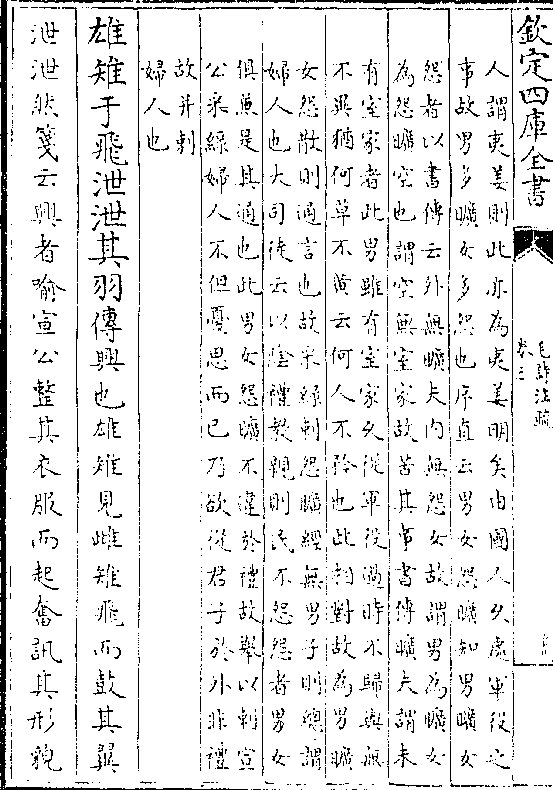 欽定四庫全書
毛詩注疏
卷三
人謂夷姜則此亦為夷姜明矣由國人久處軍役之
事故男多曠女多怨也序直云男女怨曠知男曠女
怨者以書傳云外無曠夫内無怨女故謂男為曠女
為怨曠空也謂空無室家故苦其事書傳曠夫謂未
有室家者此男雖有室家久從軍役過時不歸與無
不異猶何草不黄云何人不矜也此相對故為男曠
女怨散則通言也故采緑刺怨曠經無男子則總謂
婦人也大司徒云以隂禮教親則民不怨怨者男女
俱兼是其通也此男女怨曠不違於禮故舉以刺宣
公采緑婦人不但憂思而已乃欲從君子於外非禮
故并刺
婦人也
雄雉于飛泄泄其羽傳興也雄雉見雌雉飛而鼓其翼
泄泄然箋云興者喻宣公整其衣服而起奮訊其形貌